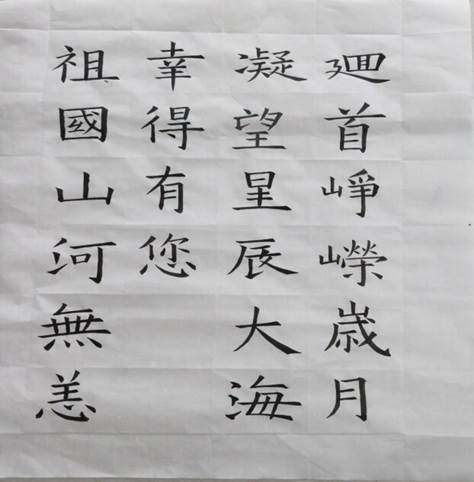 廻首崢嶸歲月
凝望星辰大海
幸得有您
祖國山河無恙